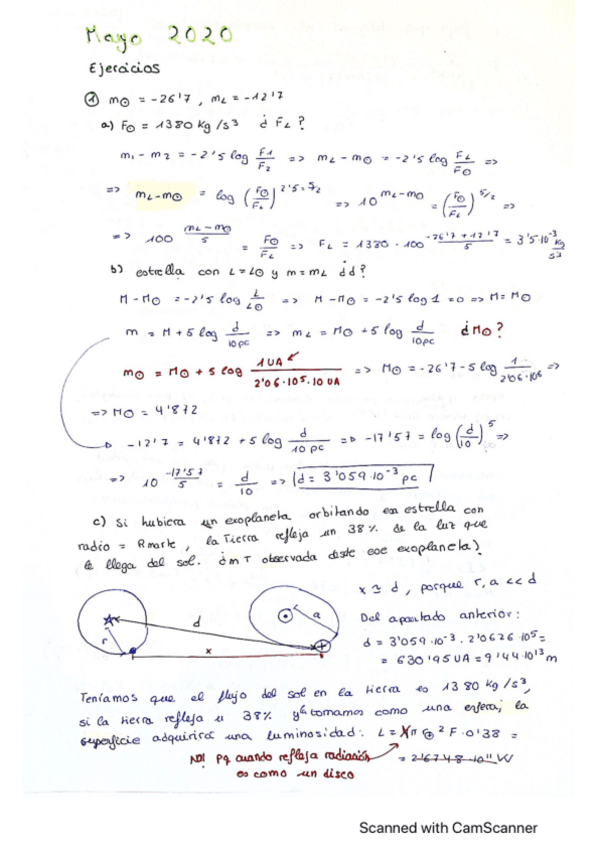 Mayo 2020
Ejercicios
① m☉ = -26'7 , mL = -12'7
a) F☉ = 1380 kg/s³ ¿ FL ?
m₁ - m₂ = -2'5 log F1/F2 => mL - m☉ = -2'5 log FL/F☉ =>
=> mL - m☉ = log (F☉/FL)^2'5 = 5/2 => 10^mL-m☉ = (F☉/FL)^5/2 =>
=> 100^(mL-m☉)/5 = F☉/FL => FL = 1380 · 100^(-26'7+12'7)/5 = 3'5·10⁻³ kg/s³
b) estrella con L = L☉ y m = mL ¿d?
M - M☉ = -2'5 log L/L☉ => M - M☉ = -2'5 log 1 = 0 => M = M☉
m = M + 5 log d/10pc => mL = M☉ + 5 log d/10pc ¿M☉?
m☉ = M☉ + 5 log 1 UA/2'06·10⁵·10 UA => M☉ = -26'7 - 5 log 1/2'06·10⁶ =>
=> M☉ = 4'872
-12'7 = 4'872 + 5 log d/10 pc => -17'57 = log (d/10)⁵ =>
=> 10^-17'57/5 = d/10 => d = 3'059·10⁻³ pc
c) Si hubiera un exoplaneta orbitando esa estrella con
radio = Rmarte, la Tierra refleja un 38% de la luz que
le llega del sol. ¿m T observada desde ese exoplaneta?
x ≃ d, porque r, a << d
d
a
r
x
Del apartado anterior:
d = 3'059·10⁻³ · 2'0626·10⁵ =
= 630'95 UA = 9'44·10¹³ m
Teníamos que el flujo del sol en la tierra es 1380 kg/s³,
si la tierra refleja u 38% y la tomamos como una esfera, la
superficie adquirirá una luminosidad: L = 4π⊕² F·0'38 =
= 2'6748·10¹¹ W
NO! Pq cuando refleja radiación
es como un disco
Scanned with CamScanner